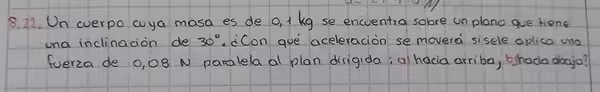 8.22. Un cuerpo cuya masa es de 0,1 kg se encuentra sobre un plano que tiene
una inclinación de 30°. ¿Con qué aceleración se moverá si sele aplica una
fuerza de 0,08 N paralela al plan dirigida: a) hacia arriba, b) hacia abajo?